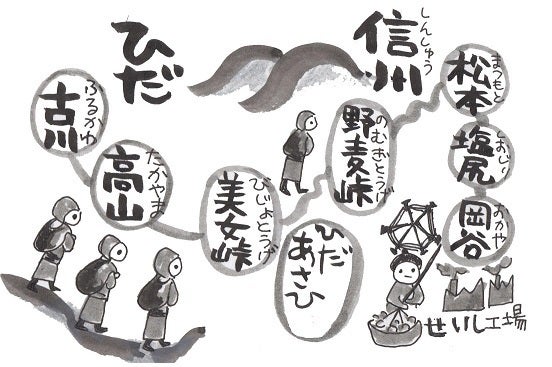 ひだ
信州
しんしゅう
古川
ふるかわ
高山
たかやま
美女峠
びじょとうげ
野麦峠
のむぎとうげ
松本
まつもと
塩尻
しおじり
岡谷
おかや
ひだ
あさひ
せいし工場